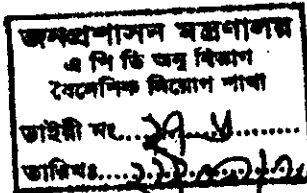 জনপ্রশাসন মন্ত্রণালয়
এ পি ডি অনু বিভাগ
বৈদেশিক নিয়োগ শাখা
ডাইরী নং...
তারিখঃ...